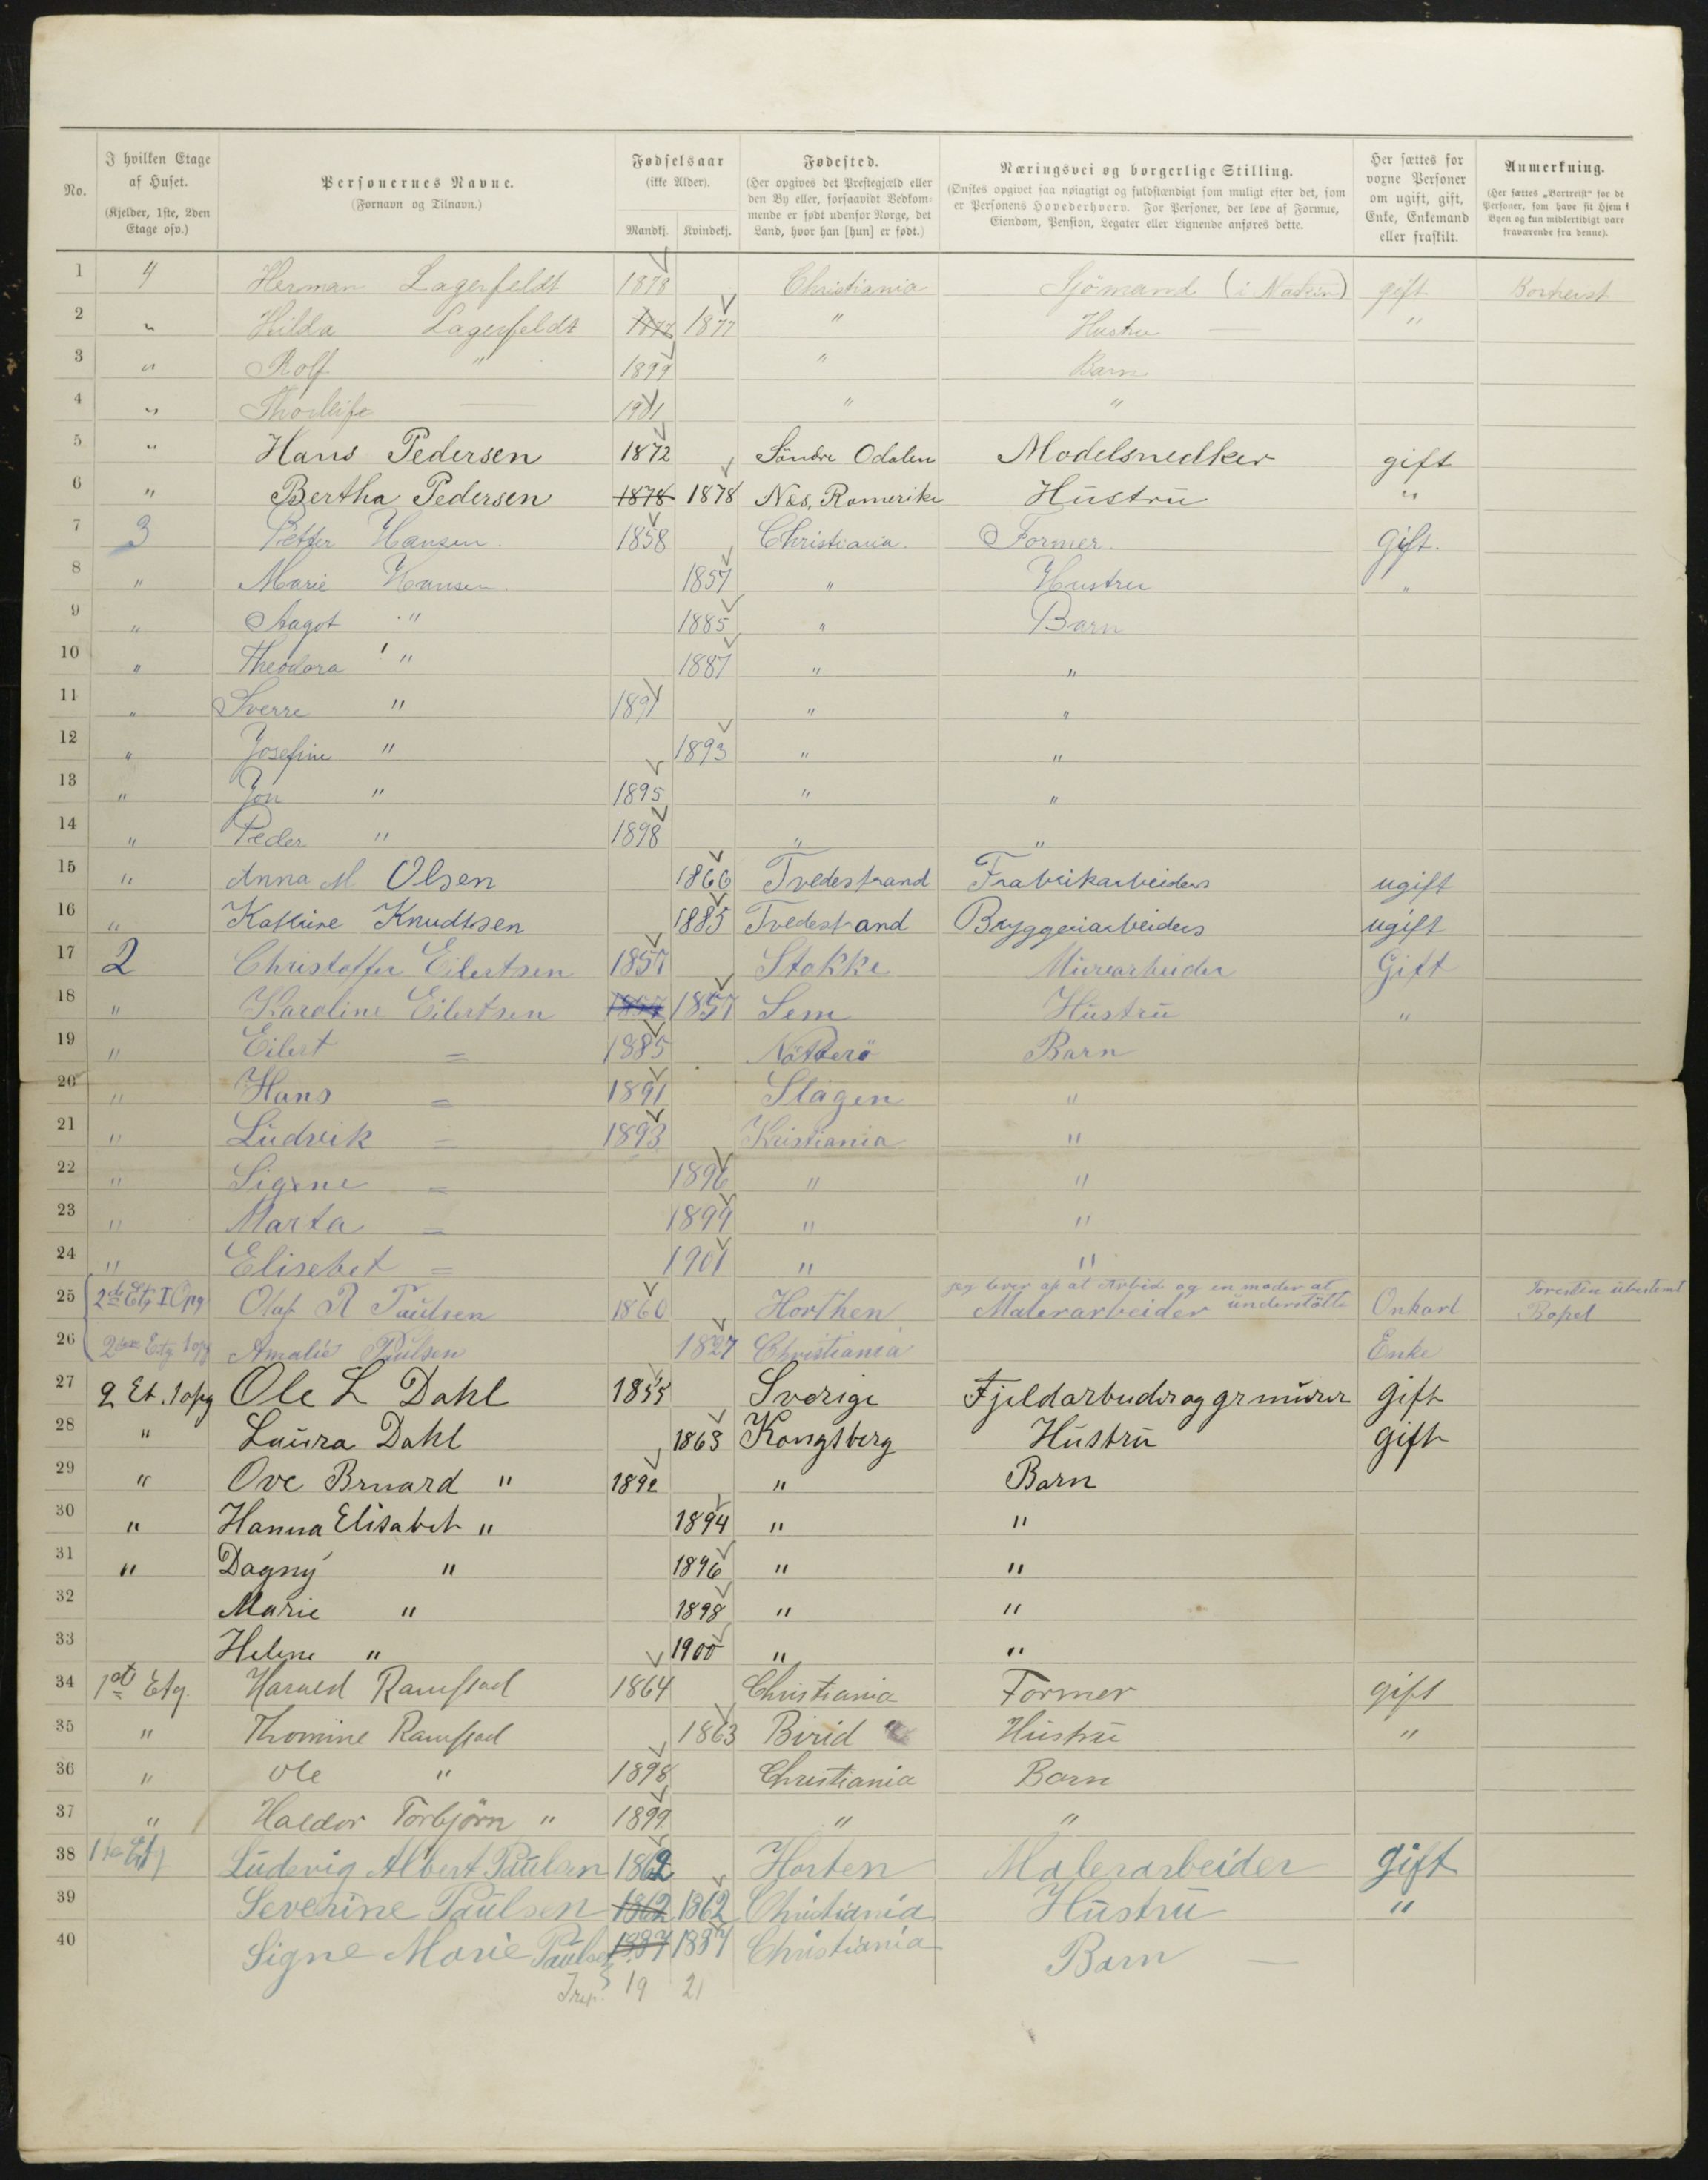 No.
I hvilken Etage af Huset.
(Kjelder, 1ste, 2den Etage osv.)
Personernes Navne.
(Fornavn og Tilnavn.)
Fødselsaar
(ikke Alder).
Mandkj. Kvindekj.
Fødested.
(Her opgives det Prestegjæld eller den By eller, forsaavidt Vedkommende er født udenfor Norge, det Land, hvor han [hun] er født.)
Næringsvei og borgerlige Stilling.
(Ønskes opgivet saa nøiagtigt og fuldstændigt som muligt efter det, som er Personens Hovederhverv. For Personer, der leve af Formue, Eiendom, Pension, Legater eller Lignende anføres dette.
Her sættes for voxne Personer om ugift, gift, Enke, Enkemand eller fraskilt.
Anmerkning.
(Her sættes „Bortreist“ for de Personer, som have sit Hjem i Byen og kun midlertidigt vare fraværende fra denne).
1 4 Herman Lagerfeldt 1878 Christiania Sjömand gift
2 " Hilda Lagerfeldt 1877 1877 " Hustru "
3 " Rolf " 1899 " Barn
4 " 1901 " "
5 " Hans Pedersen 1872 Söndre Odalen Modelsnedker gift
6 " Bertha Pedersen 1878 1878 Nes, Romerike Hustru "
7 3 Petter Hansen. 1858 Christiania. Former. Gift.
8 " Marie Hansen. 1857 " Hustru "
9 " Aagot " 1885 " Barn
10 " Theodora " 1887 " "
11 " Sverre " 1891 " "
12 " Josefine " 1893 " "
13 " Jon " 1895 " "
14 " Peder " 1898 " "
15 " Anna M Olsen 1866 Tvedestrand ugift
16 " Knudtsen 1885 Tvedestrand Bryggeriarbeiders ugift
17 2 Christoffer Eilertsen 1857 Stokke Murarbeider Gift
18 " Karoline Eilertsen 1857 1857 Sem Hustru "
19 " Eilert = 1885 Nötterö Barn
20 " Hans = 1891 Slagen "
21 " Ludvik = 1893 Kristiania "
22 " = 1896 " "
23 " Marta = 1899 " "
24 " Elisebet = 1901 " "
25 2de Etg I Opg Olaf R Paulsen 1860 Horthen jeg lever af at Arbide og en moder at understötte Malerarbeider Bopel
26 Amalie Paulsen 1827 Christiania Enke
27 2 Et. 1 opg Ole L Dahl 1855 Sverige gift
28 " Laura Dahl 1863 Kongsberg Hustru gift
29 " Ove " 1892 " Barn
30 " Hanna Elisabet " 1894 " "
31 " Dagny " 1896 " "
32 Marie " 1898 " "
33 Helene " 1900 " "
34 1ste Etg. Harald Ramstad 1864 Christiania Former gift
35 " Thomine Ramstad 1863 Birid Hustru "
36 " Ole " 1898 Christiania Barn
37 " Haldor Torbjörn " 1899 " "
38 Ludevig Albert Paulsen 1862 Horten Malerarbeider gift
39 Severine Paulsen 1862 1862 Christiania Hustru "
40 Signe Marie Paulsen 1887 1887 Christiania Barn
19 21